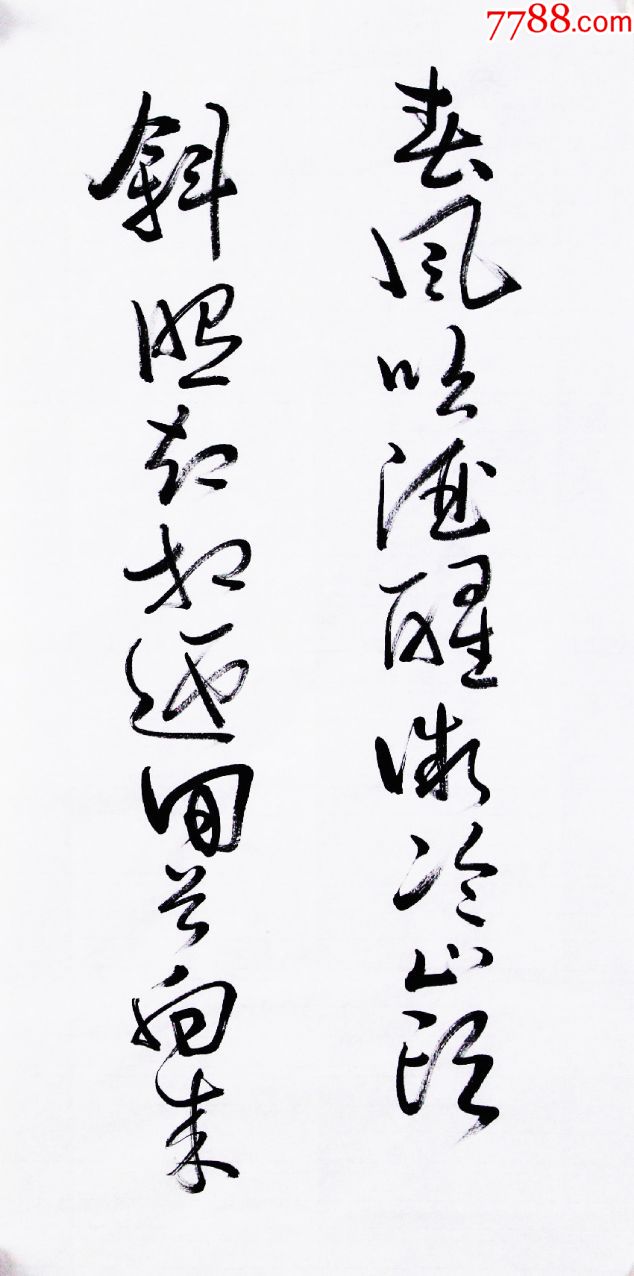 7788.com
春风吹酒醒微冷山頭
斜照却相迎回首向来